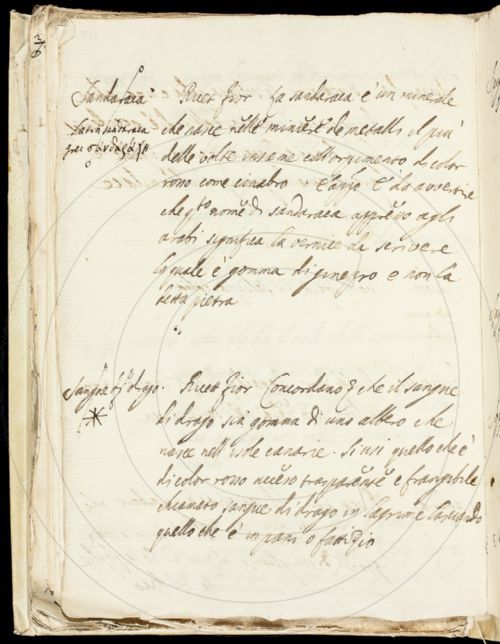 Sandaraca
Latin sandaraca
Ricet Fior La sandaraca è un minerale
che nasce nelle miniere de metalli il più
delle volte insieme coll'orpimento di color
rosso come cinabro È da avvertire
che q.to nome di sandaraca appresso agli
arabi significa la vernice da scrivere
la quale è gomma di ginepro e non la
detta pietra
Sangue di drago.
Ricet Fior Concordano che il sangue
di drago sia gomma di uno albero che
nasce nell'isole canarie. Si usi quello che è
di color rosso trasparente e frangibile
chiamato sangue di drago in lagrime lasciando
quello che è in pani o fattizio